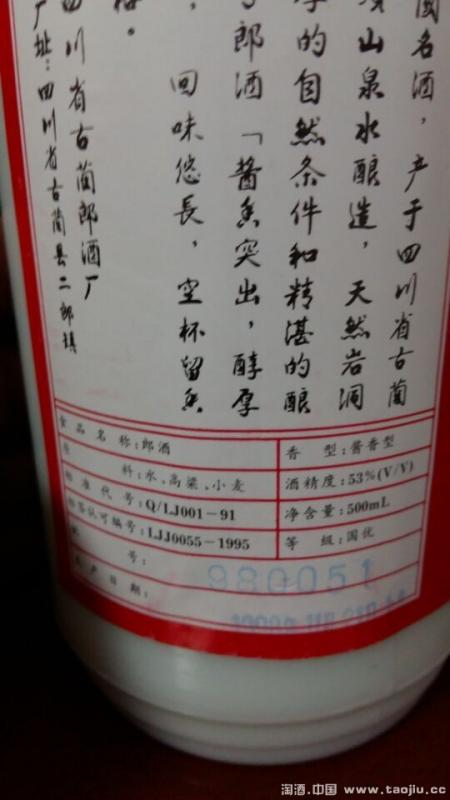 國名酒，产于四川省古蔺
山泉水酿造，天然岩洞
的自然条件和精湛的酿
郎酒「酱香突出，醇厚
回味悠長，空杯留香
四川省古蔺郎酒厂
厂址：四川省古蔺县二郎镇
食品名称：郎酒
香型：酱香型
料：水、高粱、小麦
酒精度：53%(V/V)
标准代号：Q/LJ001-91
净含量：500mL
标签认可编号：LJJ0055-1995
等级：国优
号：
980051
生产日期：
淘酒.中国 www.taojiu.cc